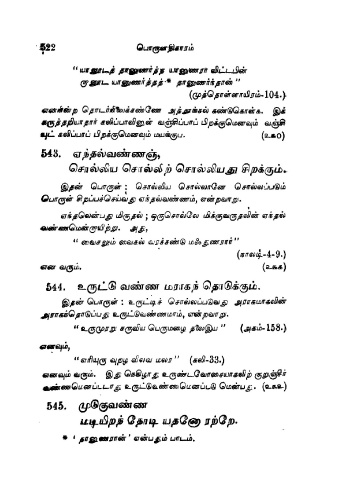 522 பொருளதிகாரம்
"யானூடத் தானுணர்த்த யானுணரா விட்டபின்
றானூட யானுணர்த்தத்* தானுணர்ந்தான்"
(முத்தொள்ளாயிரம்-104.)
என்னின்ற தொடர்நிலைக்கண்ணே அத்துள்ளல் கண்டுகொள்க. இக்
கருத்தறியாதார் கலிப்பாவினுள் வஞ்சிப்பாப் பிறக்குமெனவும் வஞ்சி
யுட் கலிப்பாப் பிறக்குமெனவும் மயக்குப. (உகூ0)
543. ஏந்தல்வண்ணஞ்,
சொல்லிய சொல்லிற் சொல்லியது சிறக்கும்.
இதன் பொருள் : சொல்லிய சொல்லானே சொல்லப்படும்
பொருள் சிறப்பச்செய்வது ஏந்தல்வண்ணம், என்றவாறு.
ஏந்தலென்பது மிகுதல் ; ஒருசொல்லே மிக்குவருதலின் ஏந்தல்
வண்ணமென்றாயிற்று. அது,
"வைகலும் வைகல் வரக்கண்டு மஃதுணரார்"
(நாலடி-4-9.)
என வரும். (உகூக)
544. உருட்டு வண்ண மராகந் தொடுக்கும்.
இதன் பொருள் : உருட்டிச் சொல்லப்படுவது அராகமாகலின்
அராகந்தொடுப்பது உருட்டுவண்ணமாம், என்றவாறு.
"உருமுரறு கருவிய பெருமழை தலைஇய" (அகம்-158.)
எனவும்,
"எரியுரு வுறழ விலவ மலர" (கலி-33.)
எனவும் வரும். இது நெகிழாது உருண்டவோசையாகலிற் குறுஞ்சீர்
வண்ணமெனப்படாது உருட்டுவண்ணமெனப்படு மென்பது. (உகூஉ)
545. முடுகுவண்ண
மடியிறந் தோடி யதனோ ரற்றே.
* 'தானுணரான்' என்பதும் பாடம்.